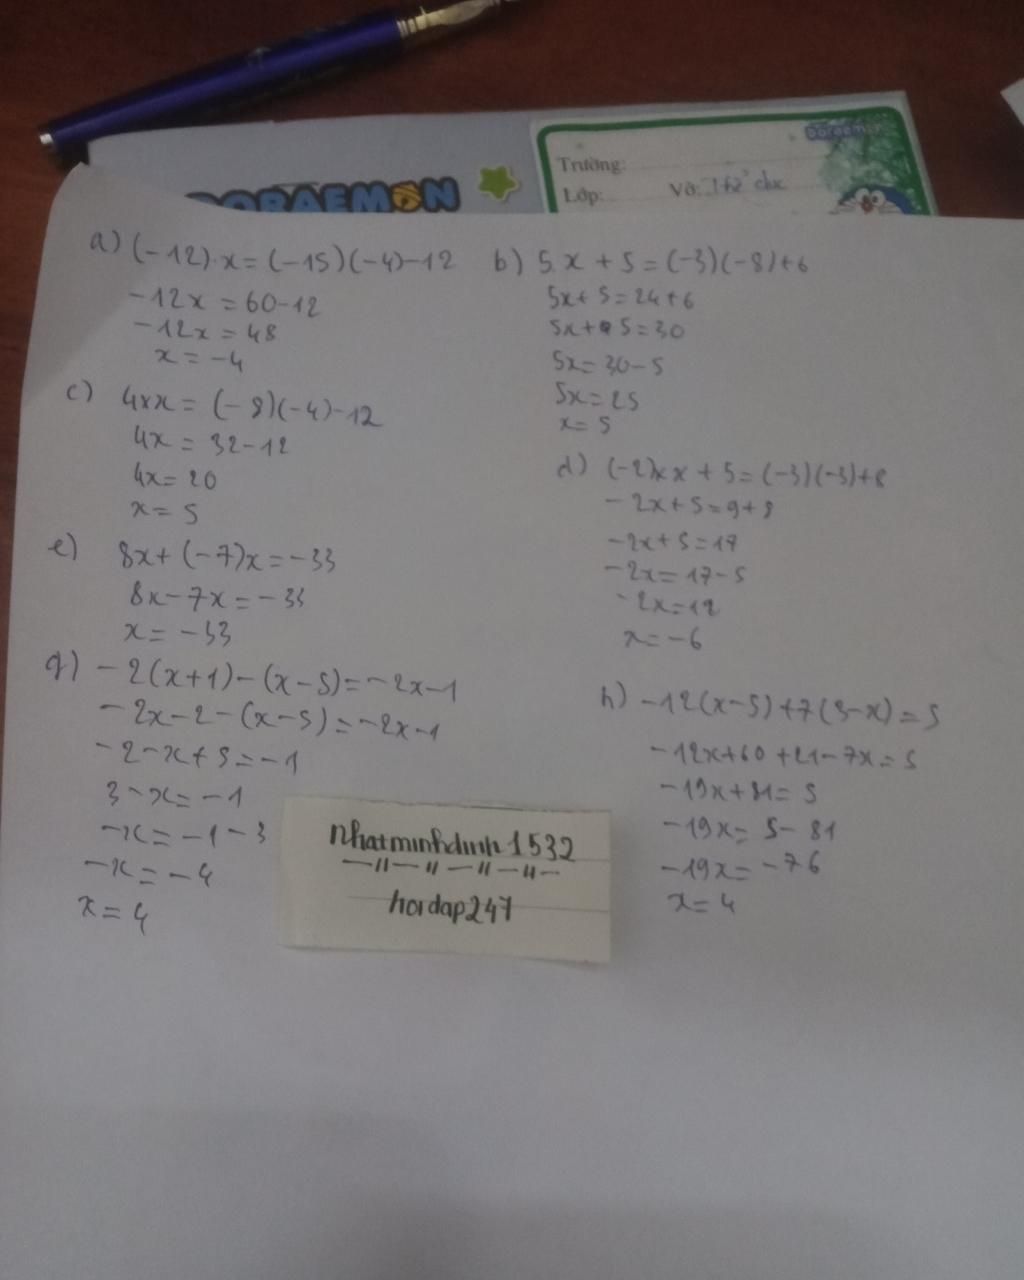 Doraemon
Trường:
Lớp:
Vở: Thể dục
DORAEMON
a) (-12).x = (-15)(-4)-12
-12x = 60-12
-12x = 48
x = -4
b) 5.x + 5 = (-3)(-8)+6
5x+5=24+6
5x+5=30
5x=30-5
5x=25
x=5
c) 4xx = (-8)(-4)-12
4x = 32-12
4x = 20
x = 5
d) (-2)xx + 5 = (-3)(-3)+8
-2x+5=9+8
-2x+5=17
-2x=17-5
-2x=12
x=-6
e) 8x+(-7)x=-33
8x-7x=-33
x=-33
g) -2(x+1)-(x-5)=-2x-1
-2x-2-(x-5)=-2x-1
-2-x+5=-1
3-x=-1
-x=-1-3
-x=-4
x=4
h) -12(x-5)+7(3-x)=5
-12x+60+21-7x=5
-19x+81=5
-19x=5-81
-19x=-76
x=4
nhatminhdinh1532
hoidap247